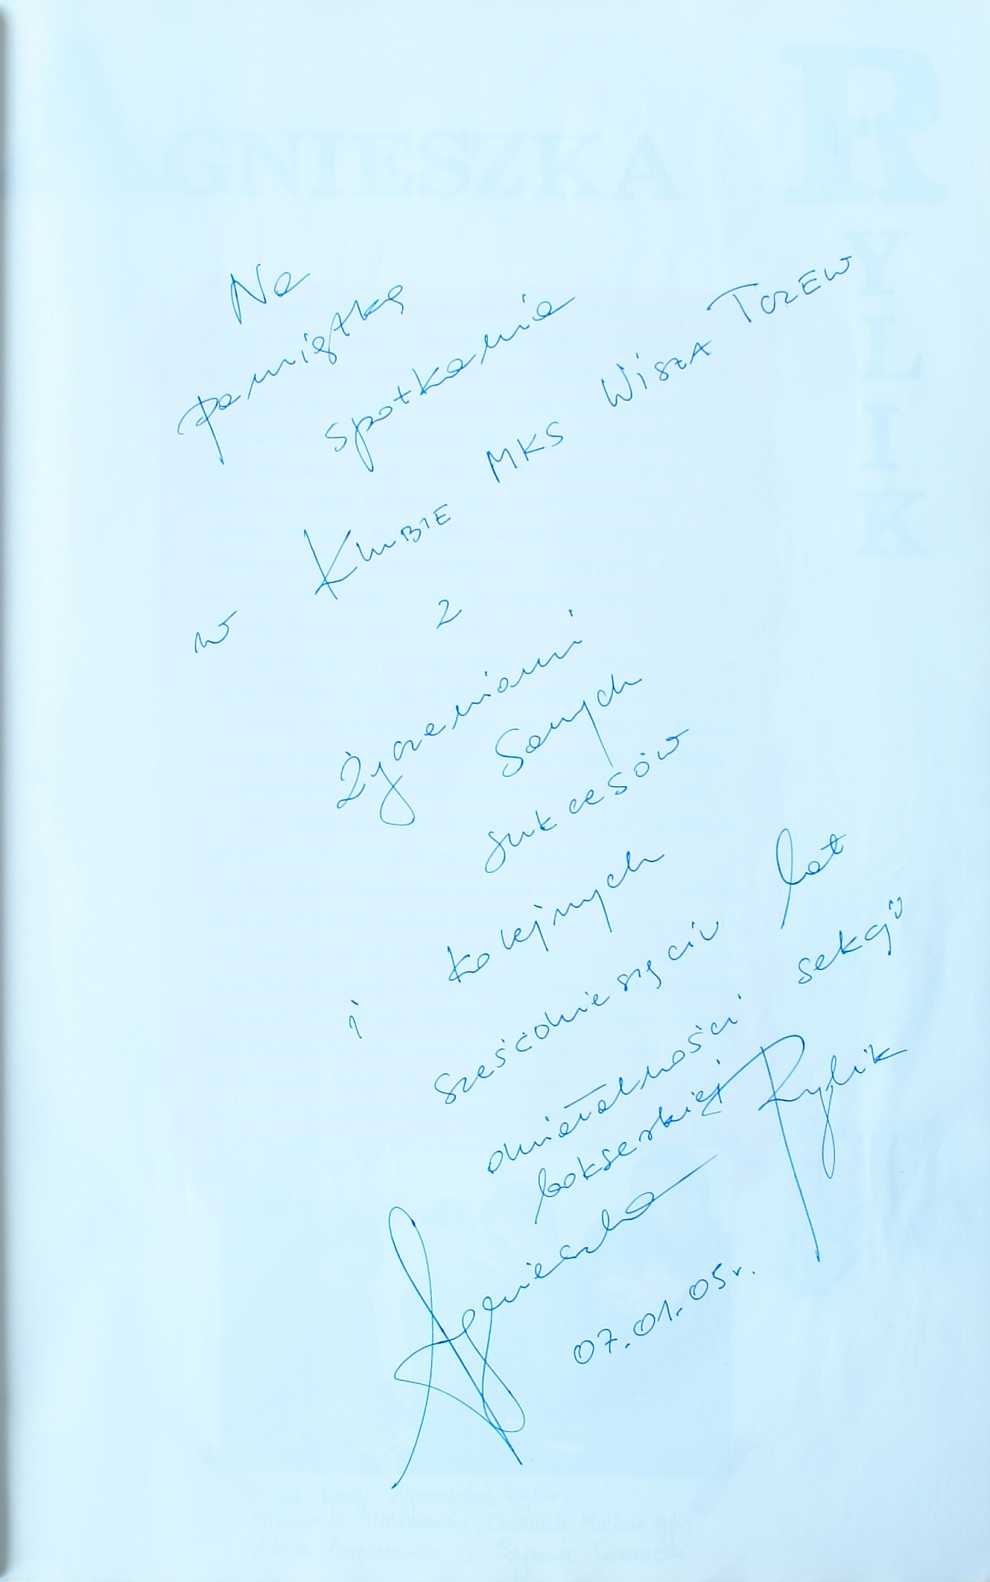 GNIESZKA
RYLIK
Na
pamiątkę
spotkania
w Klubie MKS Wisza Tczew
z
Życzeniami
Samych
sukcesów
i kolejnych
sześćdziesięciu lat
działalności sekcji
bokserskiej
Agnieszka Rylik
07.01.05r.